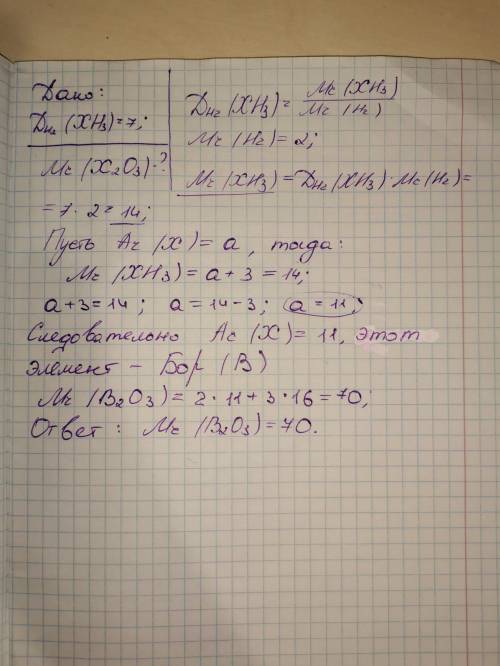 Дано:
D H₂ (XH₃) = 7;
Mr (X₂O₃) - ?
D H₂ (XH₃) = Mr (XH₃) / Mr (H₂)
Mr (H₂) = 2;
Mr (XH₃) = D H₂ (XH₃) · Mr (H₂) =
= 7 · 2 = 14;
Пусть Ar (X) = a, тогда:
Mr (XH₃) = a + 3 = 14;
a + 3 = 14; a = 14 - 3; a = 11;
Следовательно Ar (X) = 11, этот
элемент - Бор (B)
Mr (B₂O₃) = 2 · 11 + 3 · 16 = 70;
Ответ: Mr (B₂O₃) = 70.